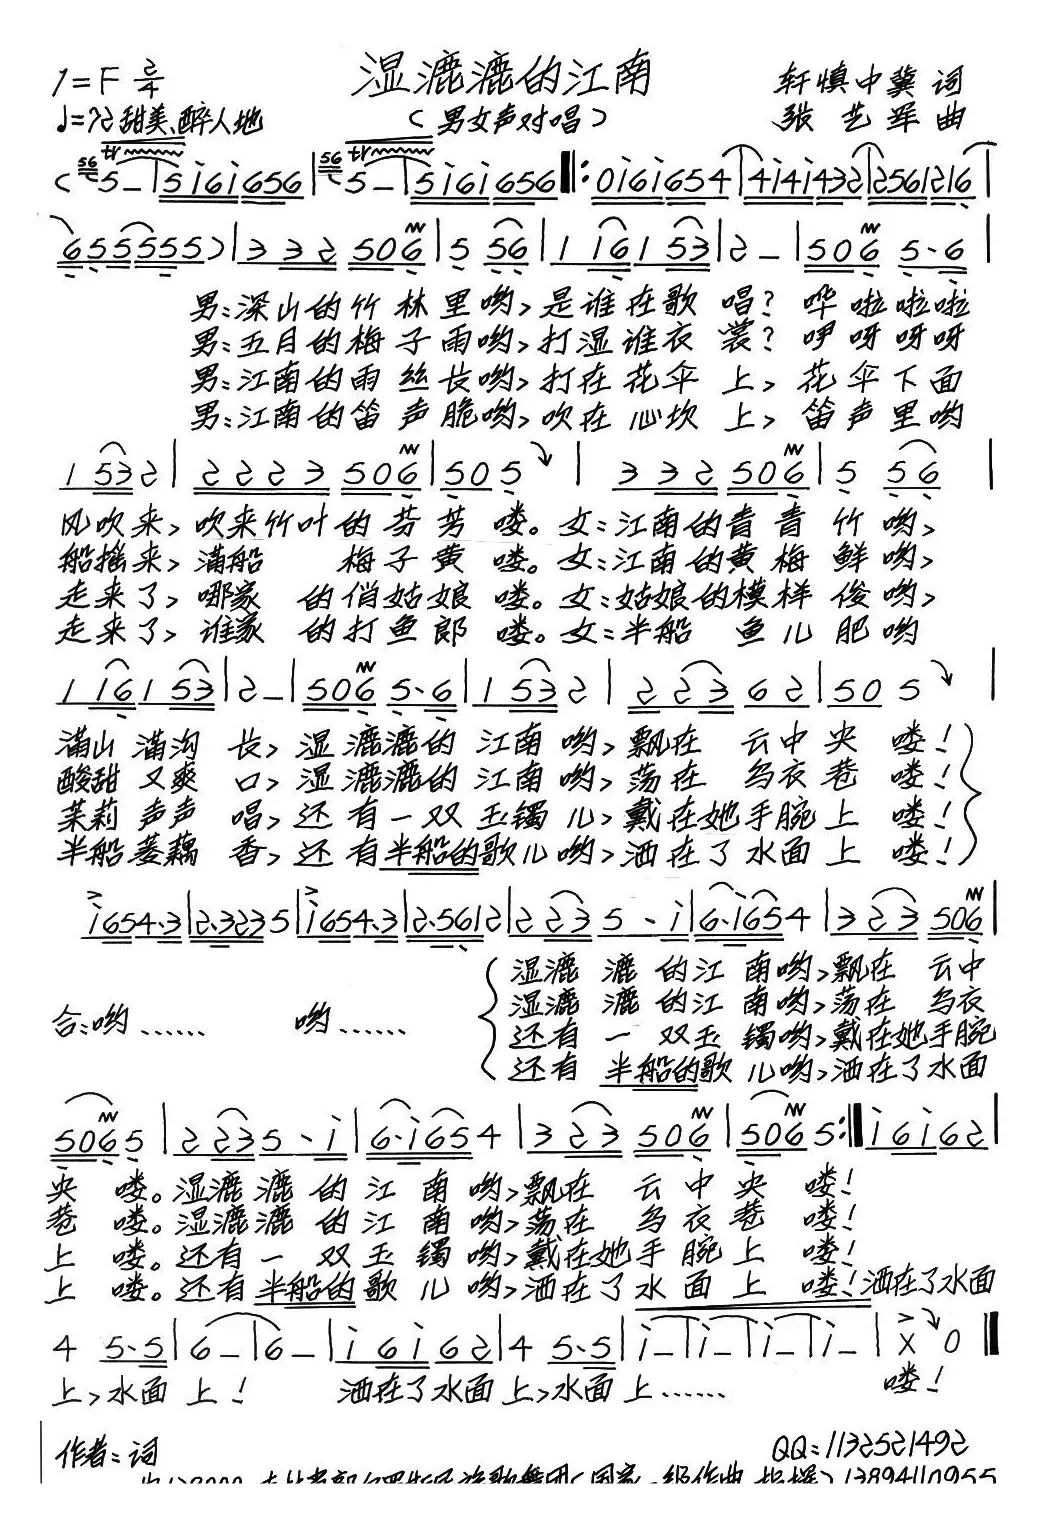 湿漉漉的江南
1=F 2/4
(男女声对唱)
轩慎中冀 词
♩=72 甜美、醉人地
张艺军 曲
(56 tr 5 — | 5i6i656 | 56 tr 5 — | 5i6i656 ‖: 0i6i654 | 4i4i432 | 2561216 |
655555) | 332 506 | 5 56 | 1 161 53 | 2 — | 506 5·6 |
男:深山的竹林里哟,是谁在歌唱?哗啦啦啦
男:五月的梅子雨哟,打湿谁衣裳?咿呀呀呀
男:江南的雨丝长哟,打在花伞上,花伞下面
男:江南的笛声脆哟,吹在心坎上,笛声里哟
1 53 2 | 2223 506 | 505 | 332 506 | 5 56 |
风吹来,吹来竹叶的芬芳喽。女:江南的青青竹哟,
船摇来,满船 梅子黄喽。女:江南的黄梅鲜哟,
走来了,哪家 的俏姑娘喽。女:姑娘的模样俊哟,
走来了,谁家 的打鱼郎喽。女:半船 鱼儿肥哟
1 161 53 | 2 — | 506 5·6 | 1 53 2 | 2 23 62 | 505 |
满山满沟长,湿漉漉的江南哟,飘在 云中央喽!
酸甜又爽口,湿漉漉的江南哟,荡在 乌衣巷喽!
茉莉声声唱,还有一双玉镯儿,戴在她手腕上喽!
半船菱藕香,还有半船的歌儿哟,洒在了水面上喽!
i654·3 | 2·3235 | i654·3 | 2·5612 | 2235·i | 6·i654 | 323 506 |
湿漉漉的江南哟,飘在 云中
湿漉漉的江南哟,荡在 乌衣
合:哟…… 哟……
还有一双玉镯哟,戴在她手腕
还有半船的歌儿哟,洒在了水面
5065 | 2235·i | 6·i654 | 323 506 | 5065 :‖ i6i62 |
央喽。湿漉漉的江南哟,飘在 云中央喽!
巷喽。湿漉漉的江南哟,荡在 乌衣巷喽!
上喽。还有一双玉镯哟,戴在她手腕上喽!
上喽。还有半船的歌儿哟,洒在了水面上喽!洒在了水面
4 5·5 | 6 — | 6 — | i6i62 | 4 5·5 | i — | i — | i — | i — | X 0 ‖
上,水面上! 洒在了水面上,水面上…… 喽!
作者:词
QQ:1132521492
13894110955